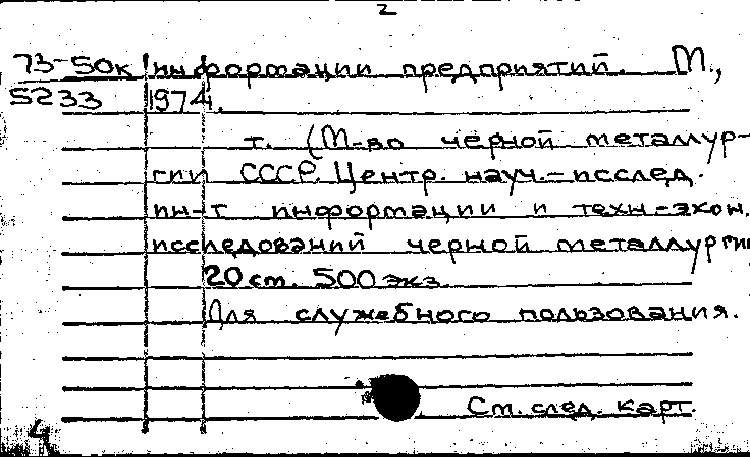 2
73-50к информации предприятий. М.,
5233 1974.
т. (М-во черной металлур-
гии СССР. Центр. науч.-исслед.
ин-т информации и техн-экон.
исследований черной металлургии
20 см. 500 экз.
Для служебного пользования.
См. след. карт.
4